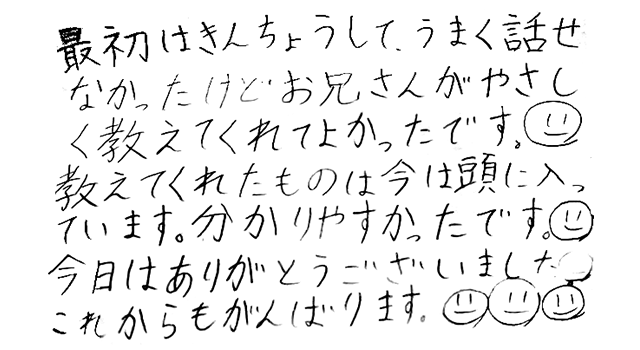 最初はきんちょうして、うまく話せ
なかったけどお兄さんがやさし
く教えてくれてよかったです。
教えてくれたものは今は頭に入っ
ています。分かりやすかったです。
今日はありがとうございました
これからもがんばります。